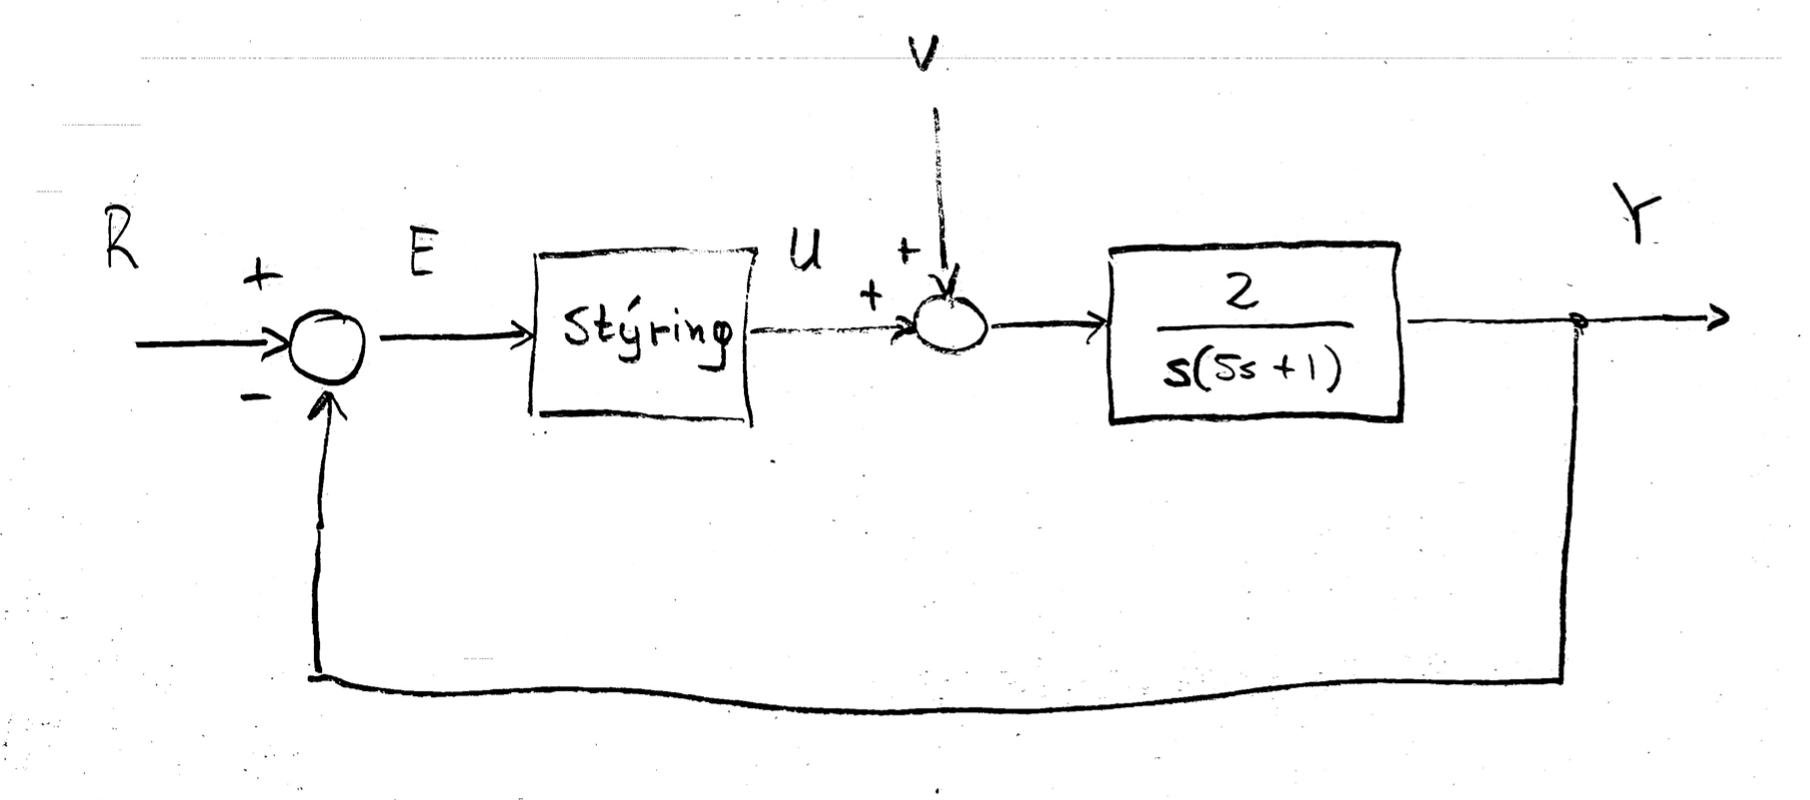 V
R
+
-
E
Stýring
U
+
+
2
s(5s+1)
Y